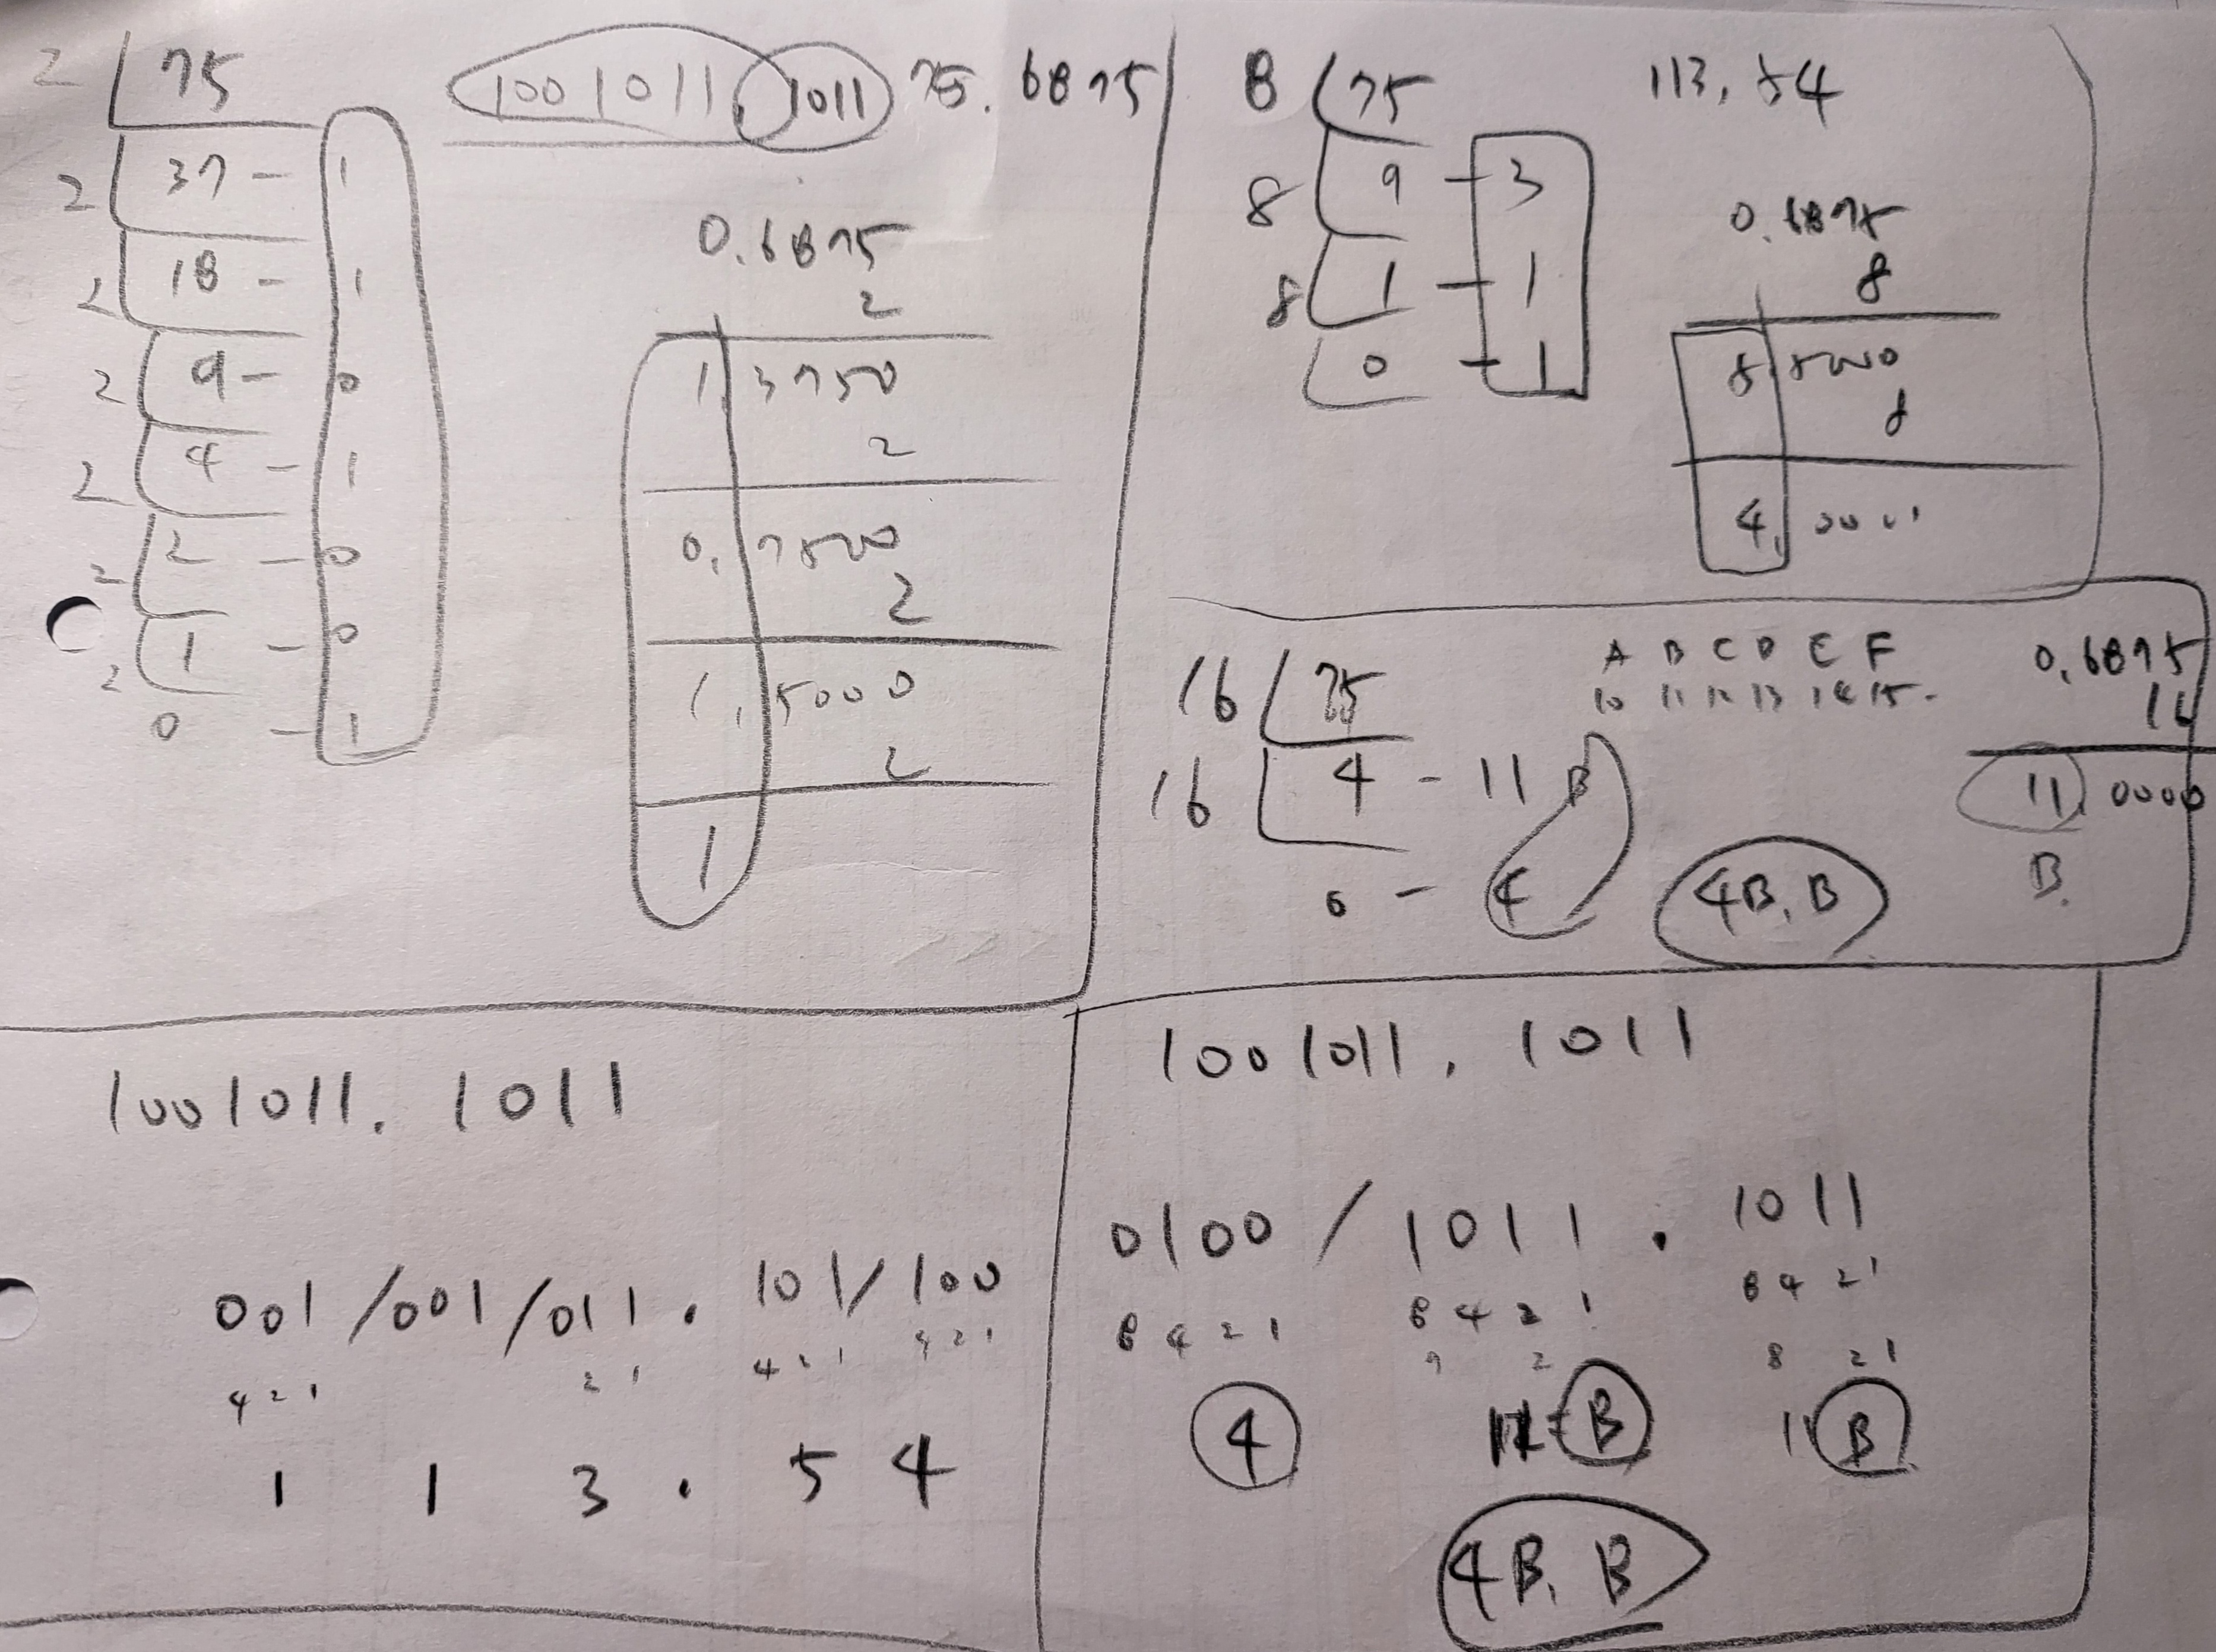 2 75 1001011.1011 75.6875
2 37 - 1
2 18 - 1
2 9 - 0
2 4 - 1
2 2 - 0
2 1 - 0
0 - 1
0.6875
2
1.3750
2
0.7500
2
1.5000
2
1
8 75 113.54
8 9 - 3
8 1 - 1
0 - 1
0.6875
8
5.5000
8
4.0000
16 75
16 4 - 11 B
0 - 4
A B C D E F
10 11 12 13 14 15
0.6875
16
11.0000
B.
4B.B
1001011.1011
001/001/011.101/100
4 2 1 2 1 4 2 1 4 2 1
1 1 3 . 5 4
1001011.1011
0100/1011.1011
8 4 2 1 8 4 2 1 8 4 2 1
8 2 1
4 11 B 11 B
4B.B